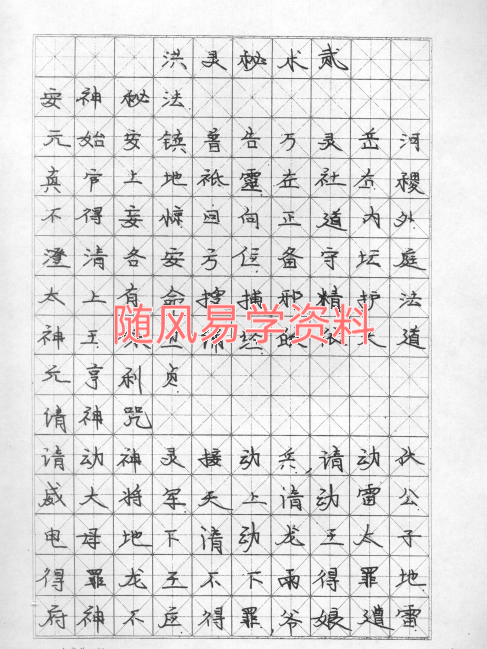 洪灵秘术贰
安神秘法
元始安镇普告万灵岳河
真官上地祗靈左社右稷
不得妄惊回向正道内外
澄清各安方位备守坛庭
太上有命搜捕邪精护法
神王 卫诵经皈依大道
元亨利贞
请神咒
请动神灵接动兵,请动队
威大将军天上请动雷公
电母地下请动龙王太子
得罪龙王不下雨得罪地
府神不应得罪,爷娘遭雷
随风易学资料